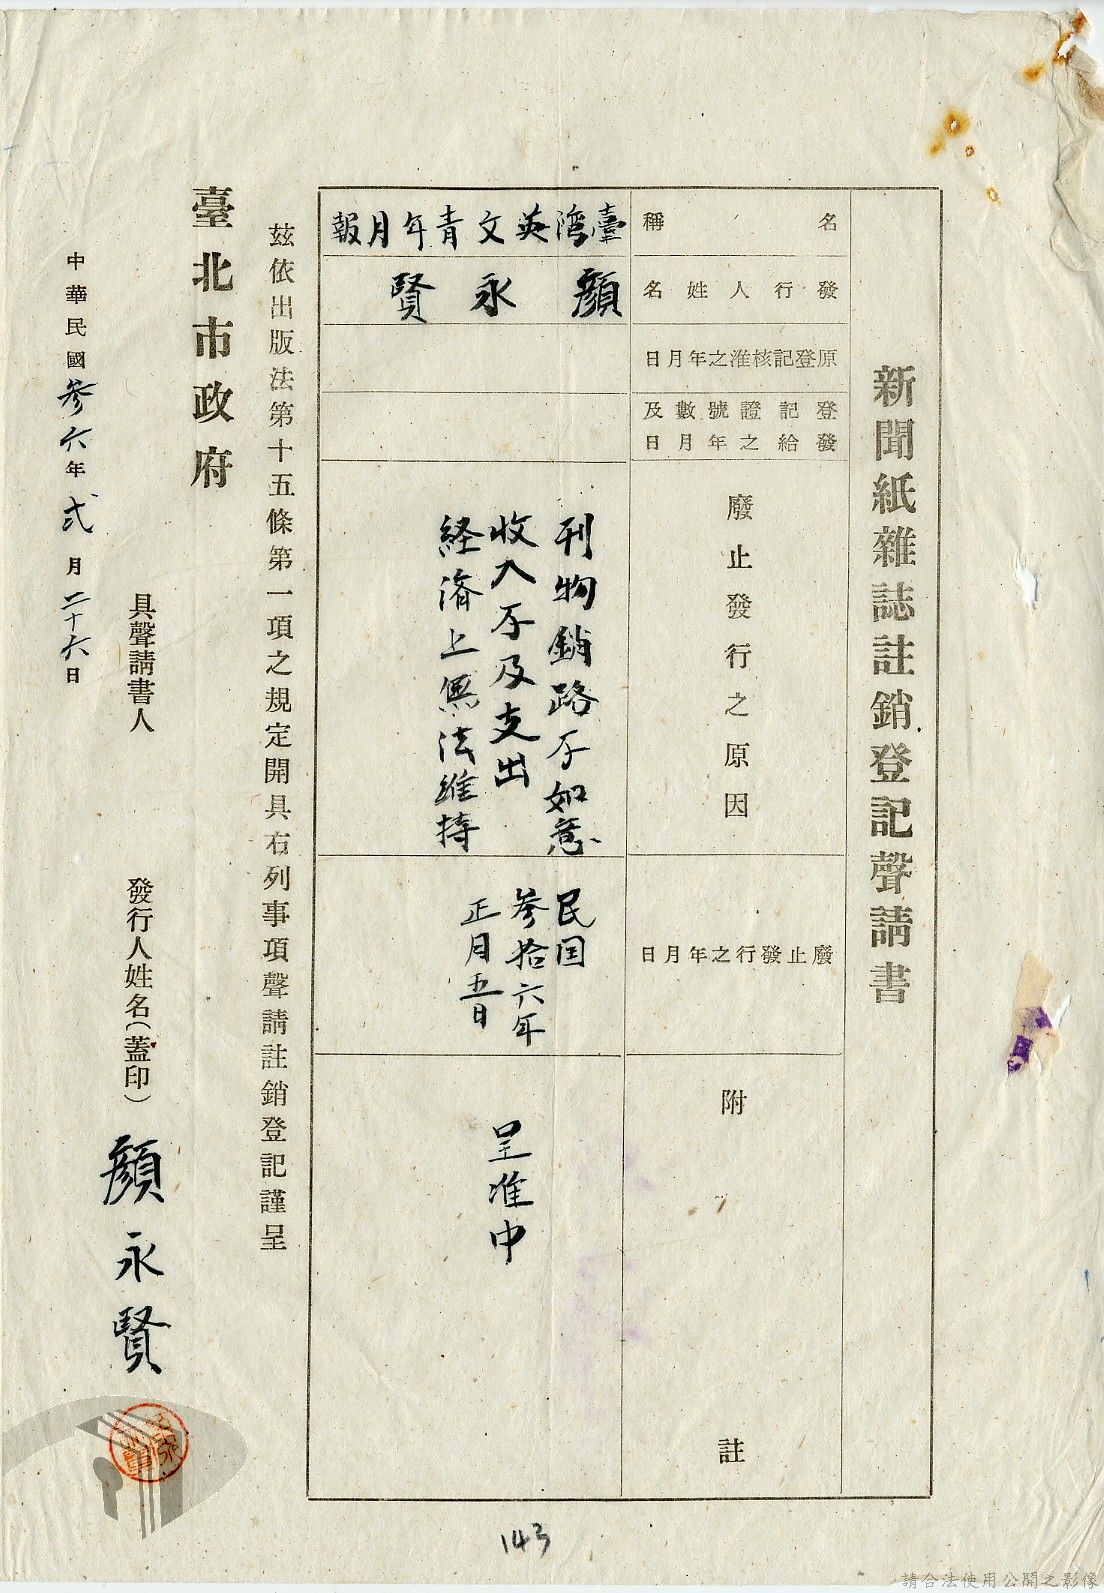 新聞紙雜誌註銷登記聲請書
名稱
臺灣英文青年月報
發行人姓名
顏永賢
原登記核准之年月日
登記證號數及
發給之年月日
廢止發行之原因
刊物銷路不如意
收入不及支出
経済上無法維持
廢止發行之年月日
民国
參拾六年
正月五日
附註
呈准中
茲依出版法第十五條第一項之規定開具右列事項聲請註銷登記謹呈
臺北市政府
具聲請書人
發行人姓名(蓋印)
顏永賢
中華民國參六年弍月二十六日
143
請合法使用公開之影像